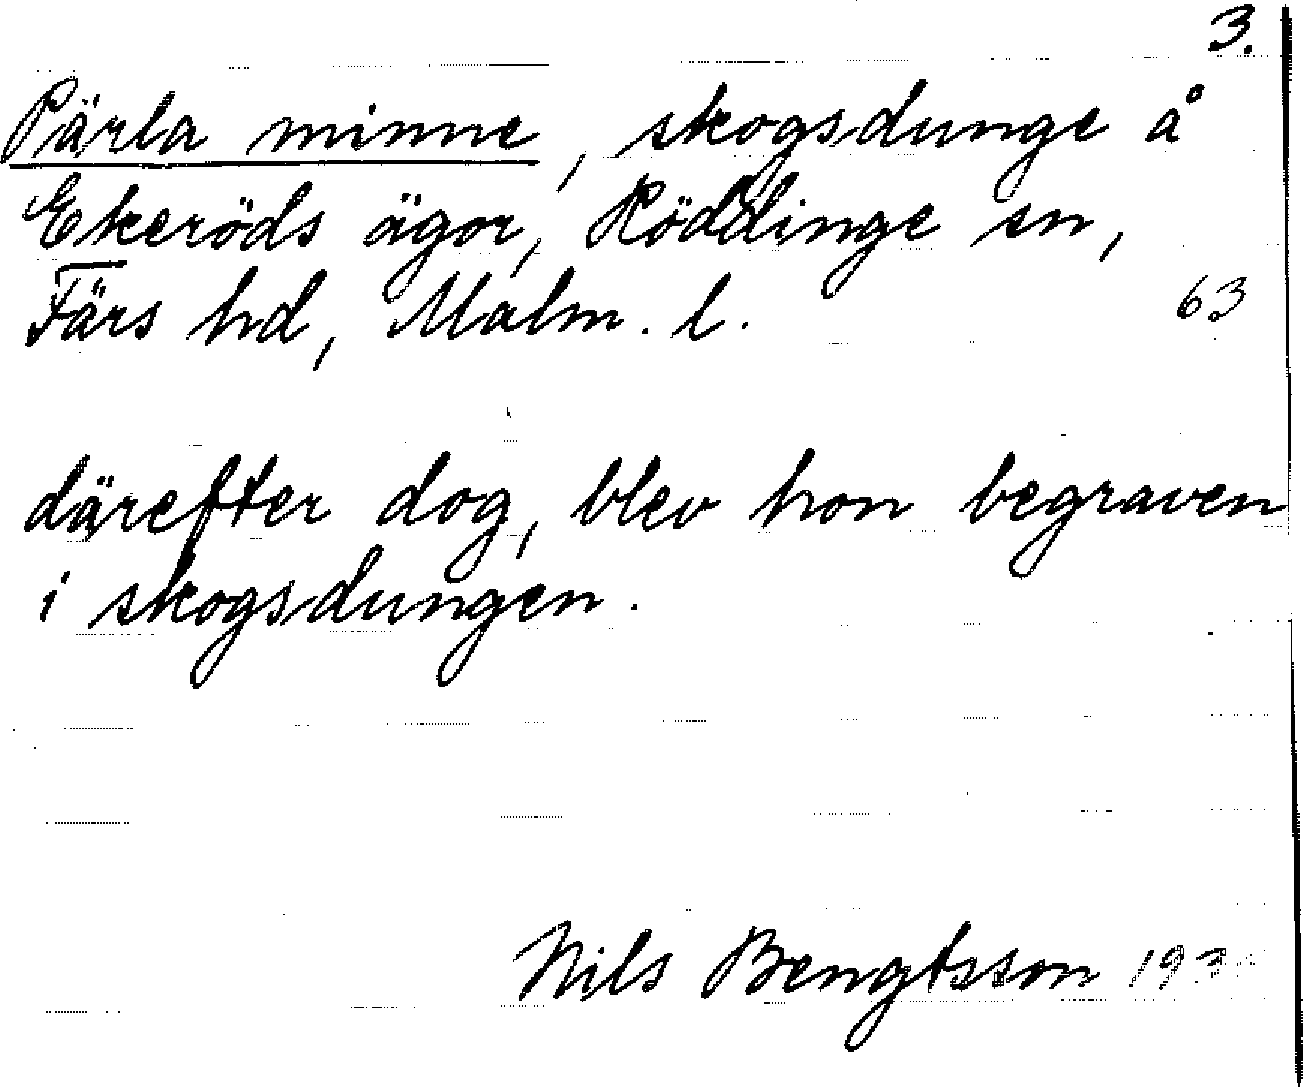 3.
Pärla minne, skogsdunge å
Ekeröds ägor, Röddinge sn,
Färs hd, Malm. l.
63
därefter dog, blev hon begraven
i skogsdungen.
Nils Bengtsson